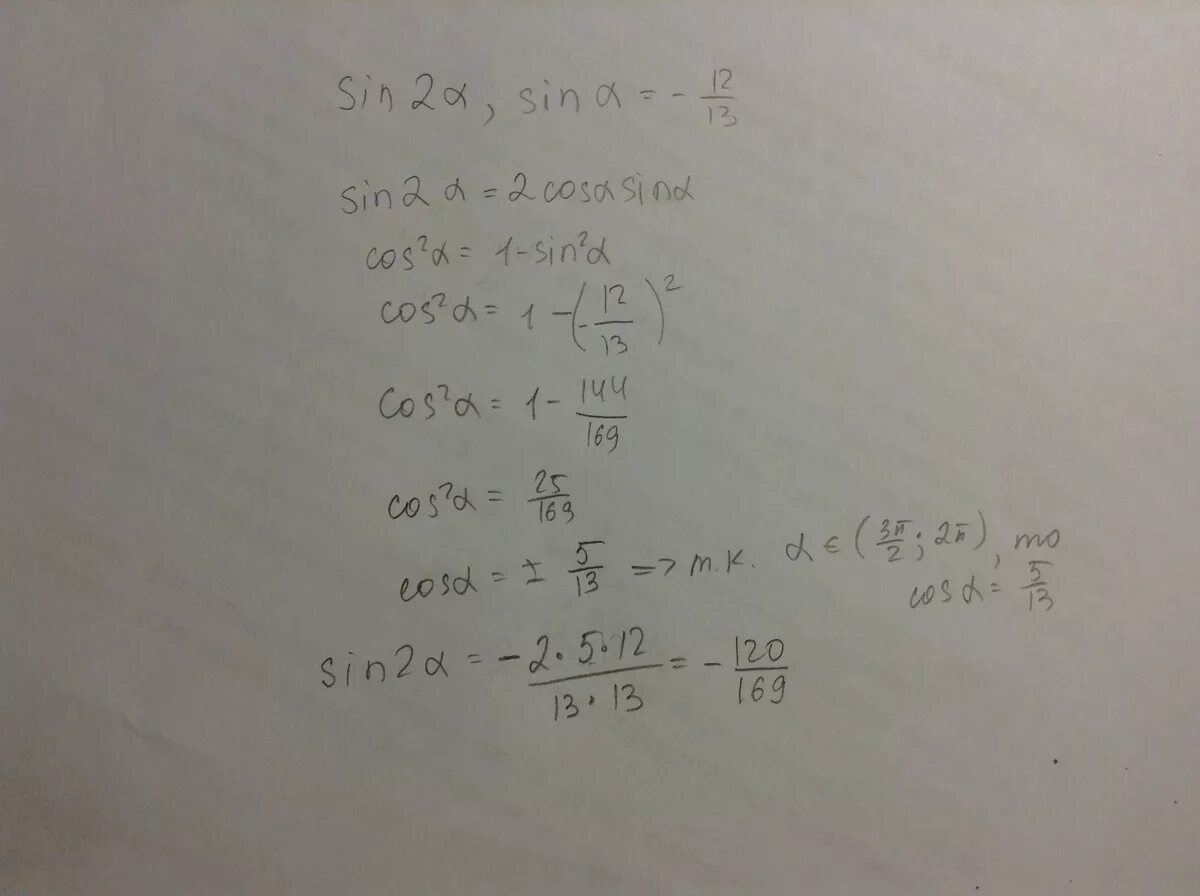 sin 2α, sin α = - 12/13
sin 2 α = 2 cosα sinα
cos²α = 1 - sin²α
cos²α = 1 - (- 12/13)²
cos²α = 1 - 144/169
cos²α = 25/169
cosα = ± 5/13 => т.к. α ∈ (3π/2; 2π), то
cos α = 5/13
sin 2α = - 2·5·12/13·13 = - 120/169